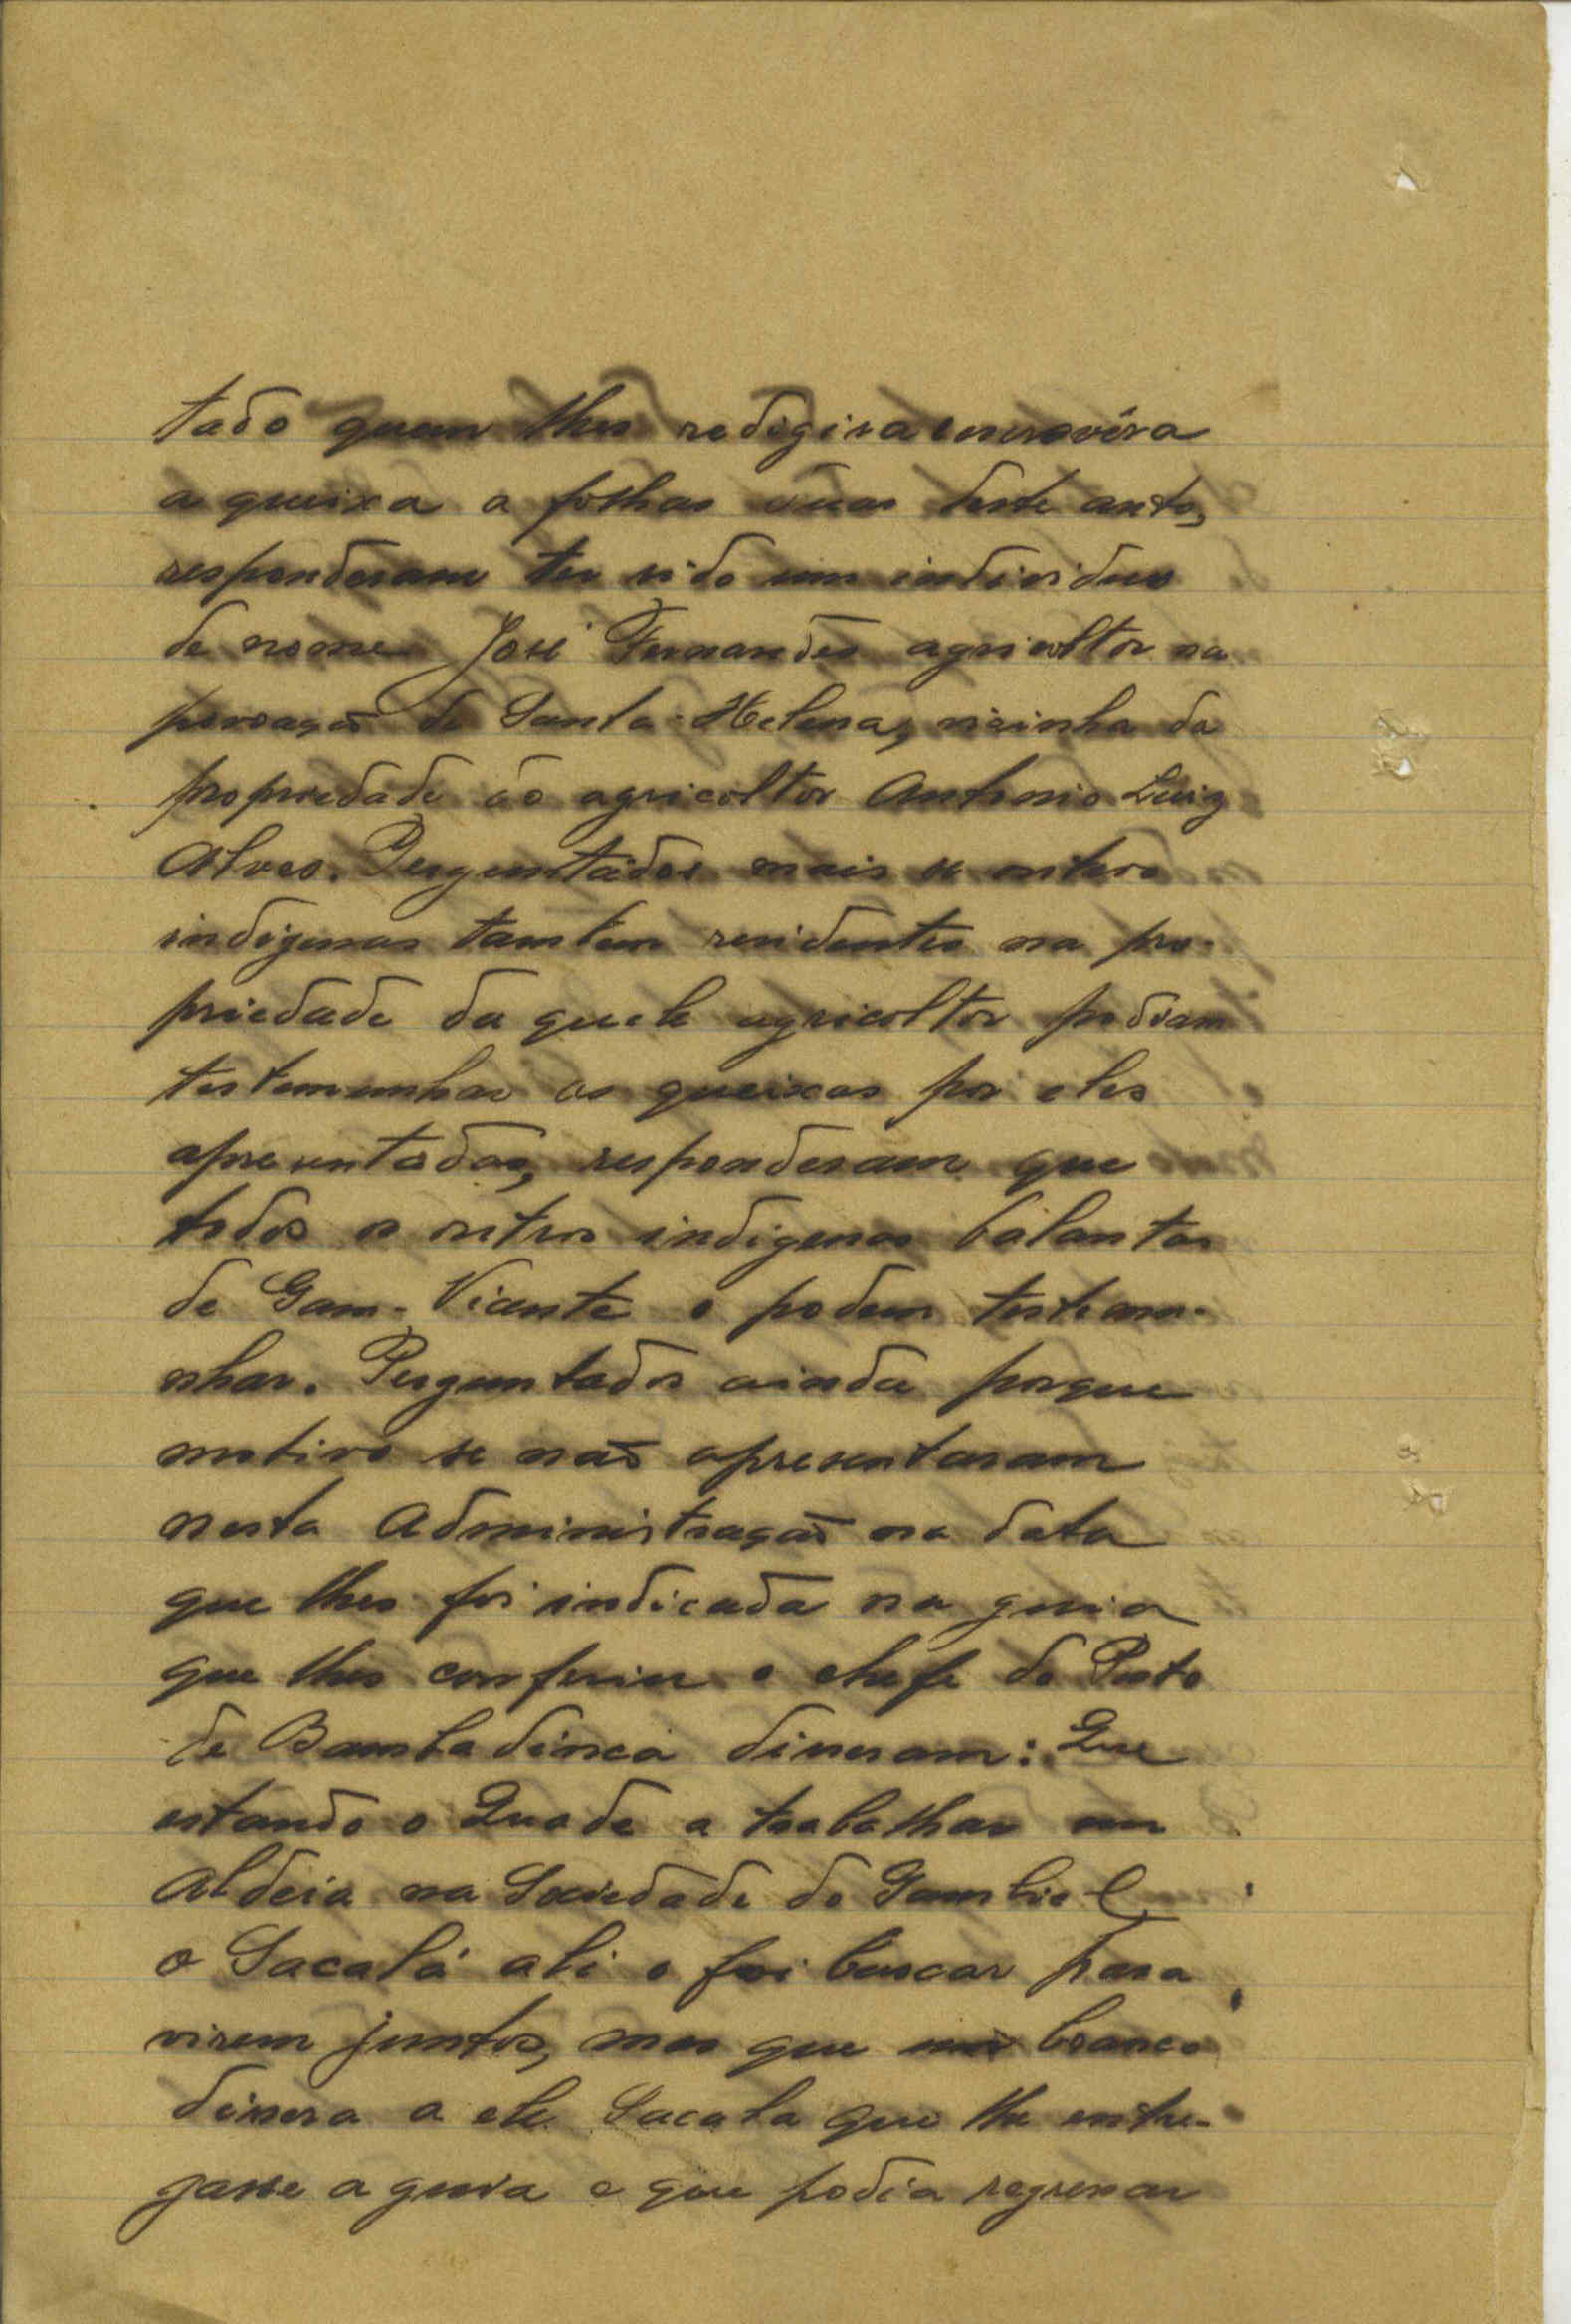 tado quem lhes redigira e escrevêra
a queixa a folhas duas deste auto,
responderam ter sido um individuo
de nome José Fernandes agricoltor na
povoação de Santa Helena, visinha da
propriedade do agricoltor Antonio Luiz
Alves. Perguntados mais se outros
indigenas tambem residentes na pro-
priedade daquele agricoltor podiam
testemunhar as queixas por eles
apresentadas, responderam que
todos os outros indigenas balantas
de Gam-Viante o podem testemu-
nhar. Perguntados ainda porque
motivo se não apresentaram
nesta Administração na data
que lhes foi indicada na guia
que lhes conferiu o chefe do Posto
de Bambadinca disseram: Que
estando o Quade a trabalhar em
Aldeia na Sociedade do Gambiel
o Sacalá ali o foi buscar para
virem juntos, mas que um branco
dissera a ele Sacala que lhe entre-
gasse a guia e que podia regressar